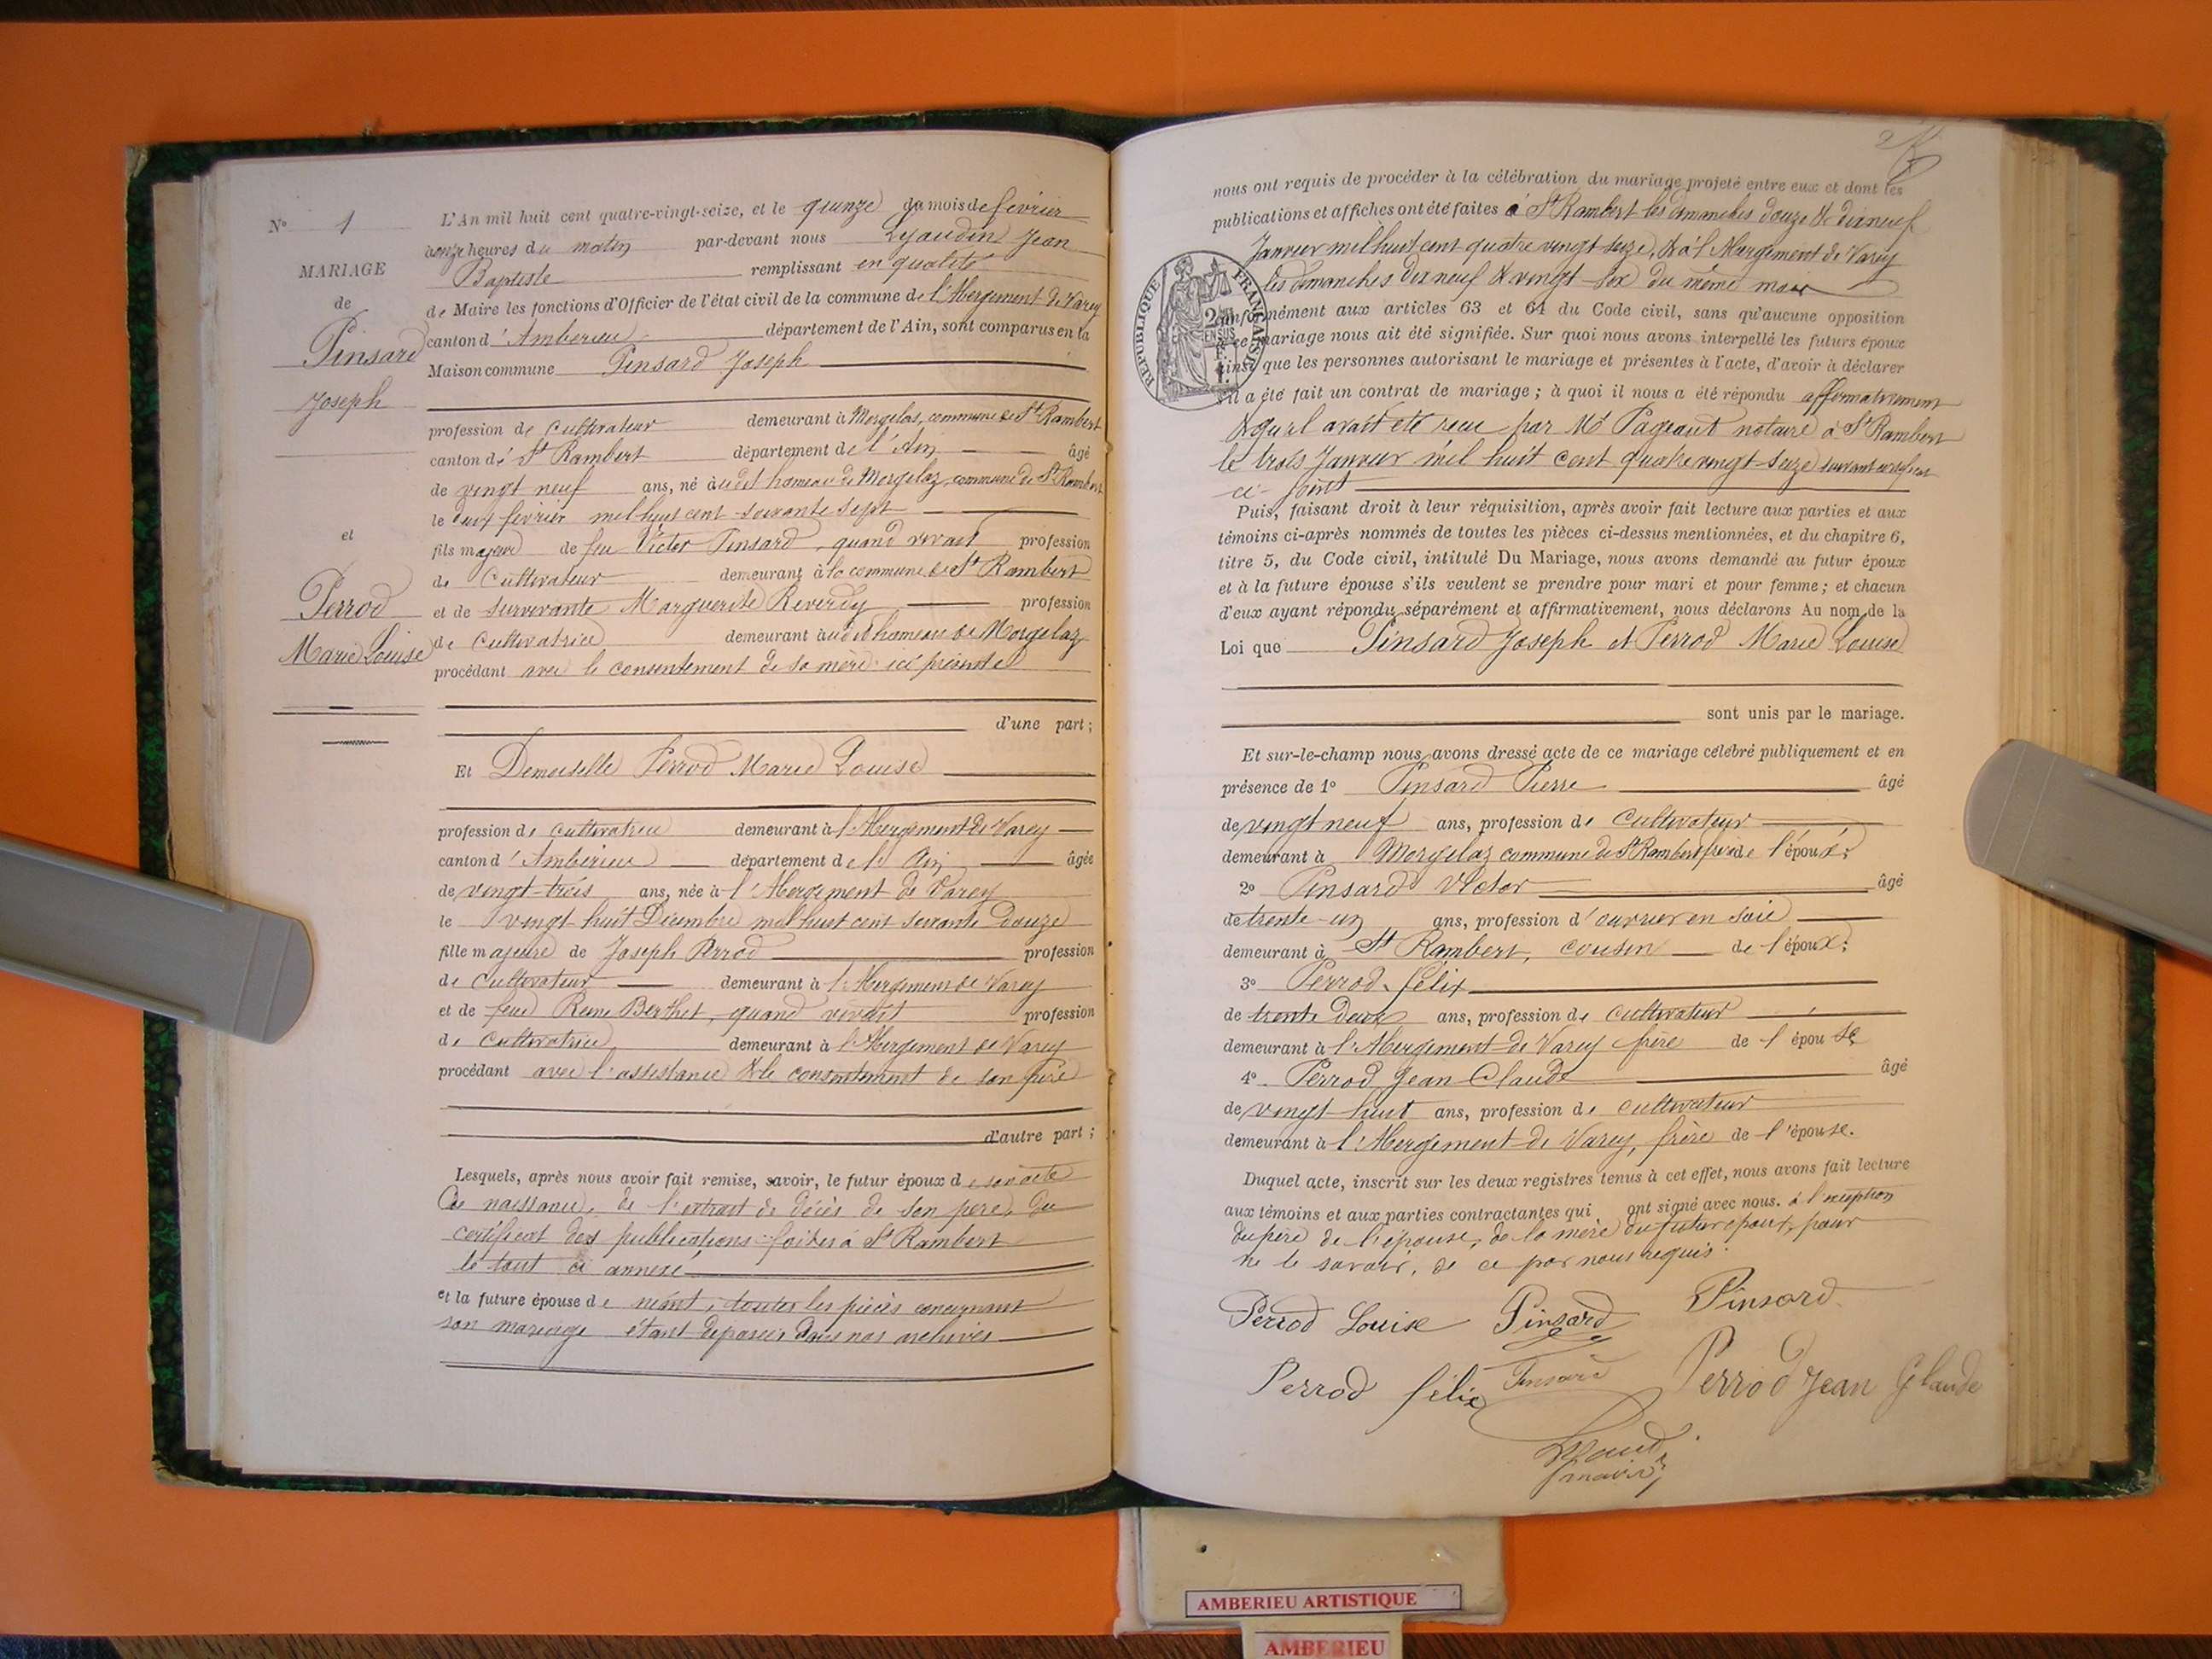 N° 1
MARIAGE
de
Pinsard
Joseph
et
Perrod
Marie Louise
L'An mil huit cent quatre-vingt-seize, et le quinze du mois de février
à onze heures du matin par-devant nous Lyaudin Jean
Baptiste remplissant en qualité
de Maire les fonctions d'Officier de l'état civil de la commune de l'Abergement de Varey
canton d'Ambérieu département de l'Ain, sont comparus en la
Maison commune Pinsard Joseph
profession de cultivateur demeurant à Morgelas, commune de St Rambert
canton de St Rambert département de l'Ain âgé
de vingt neuf ans, né audit hameau de Morgelaz, commune de St Rambert
le deux février mil huit cent soixante sept
fils majeur de feu Victor Pinsard, quand vivait profession
de Cultivateur demeurant à la commune de St Rambert
et de survivante Marguerite Reverdy profession
de Cultivatrice demeurant audit hameau de Morgelaz
procédant avec le consentement de sa mère ici présente
d'une part ;
Et Demoiselle Perrod Marie Louise
profession de cultivatrice demeurant à l'Abergement de Varey
canton d'Ambérieu département de l'Ain âgée
de vingt-trois ans, née à l'Abergement de Varey
le vingt-huit Décembre mil huit cent soixante douze
fille majeure de Joseph Perrod profession
de Cultivateur demeurant à l'Abergement de Varey
et de feue Reine Berthet, quand vivait profession
de Cultivatrice demeurant à l'Abergement de Varey
procédant avec l'assistance & le consentement de son père
d'autre part ;
Lesquels, après nous avoir fait remise, savoir, le futur époux de son acte
de naissance, de l'extrait de décès de son père, du
certificat des publications faites à St Rambert
le tout ci annexé
et la future épouse de néant, toutes les pièces concernant
son mariage étant déposées dans nos archives
2
nous ont requis de procéder à la célébration du mariage projeté entre eux et dont les
publications et affiches ont été faites à St Rambert les dimanches douze & dixneuf
Janvier mil huit cent quatre vingt seize, & à l'Abergement de Varey
les dimanches dix neuf & vingt-six du même mois
RÉPUBLIQUE FRANÇAISE
conformément aux articles 63 et 64 du Code civil, sans qu'aucune opposition
à ce mariage nous ait été signifiée. Sur quoi nous avons interpellé les futurs époux
ainsi que les personnes autorisant le mariage et présentes à l'acte, d'avoir à déclarer
s'il a été fait un contrat de mariage ; à quoi il nous a été répondu affirmativement
& qu'il avait été reçu par Me Pageaut notaire à St Rambert
le trois Janvier mil huit cent quatre vingt-seize suivant certificat
ci-joint
Puis, faisant droit à leur réquisition, après avoir fait lecture aux parties et aux
témoins ci-après nommés de toutes les pièces ci-dessus mentionnées, et du chapitre 6,
titre 5, du Code civil, intitulé Du Mariage, nous avons demandé au futur époux
et à la future épouse s'ils veulent se prendre pour mari et pour femme ; et chacun
d'eux ayant répondu séparément et affirmativement, nous déclarons Au nom de la
Loi que Pinsard Joseph et Perrod Marie Louise
sont unis par le mariage.
Et sur-le-champ nous avons dressé acte de ce mariage célébré publiquement et en
présence de 1° Pinsard Pierre âgé
de vingt neuf ans, profession de Cultivateur
demeurant à Morgelaz commune de St Rambert frère de l'époux ;
2° Pinsard Victor âgé
de trente-un ans, profession d'ouvrier en soie
demeurant à St Rambert, cousin de l'époux ;
3° Perrod Félix
de trente deux ans, profession de cultivateur
demeurant à l'Abergement de Varey frère de l'épouse
4° Perrod Jean-Claude âgé
de vingt huit ans, profession de cultivateur
demeurant à l'Abergement de Varey, frère de l'épouse.
Duquel acte, inscrit sur les deux registres tenus à cet effet, nous avons fait lecture
aux témoins et aux parties contractantes qui ont signé avec nous. à l'exception
du père de l'épouse, de la mère du futur époux, pour
ne le savoir, de ce par nous requis.
Perrod Louise Pinsard Pinsard
Perrod félix Pinsard Perrod Jean Claude
Lyaudin
maire
AMBERIEU ARTISTIQUE
AMBERIEU